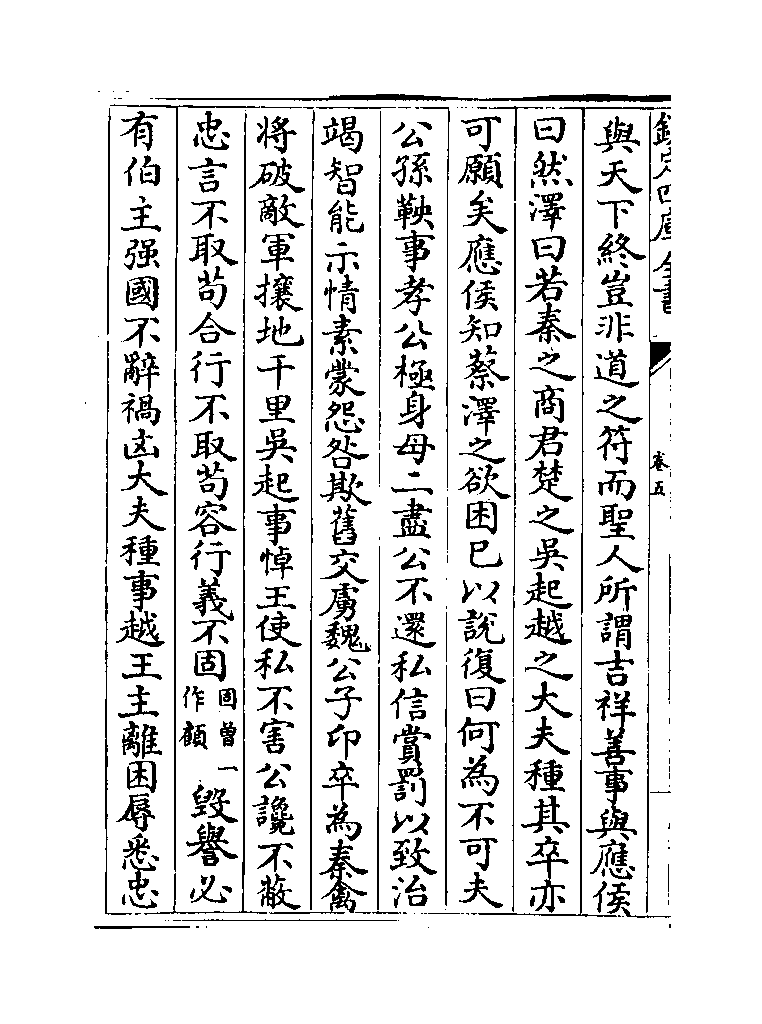 欽定四庫全書
卷五
與天下終豈非道之符而聖人所謂吉祥善事與應侯
曰然澤曰若秦之商君楚之吳起越之大夫種其卒亦
可願矣應侯知蔡澤之欲困已以說復曰何為不可夫
公孫鞅事孝公極身毋二盡公不還私信賞罰以致治
竭智能示情素蒙怨咎欺舊交虜魏公子卬卒為秦禽
將破敵軍攘地千里吳起事悼王使私不害公讒不蔽
忠言不取茍合行不取茍容行義不固固曾一作顧毀譽必
有伯主强國不辭禍凶大夫種事越王主離困辱悉忠